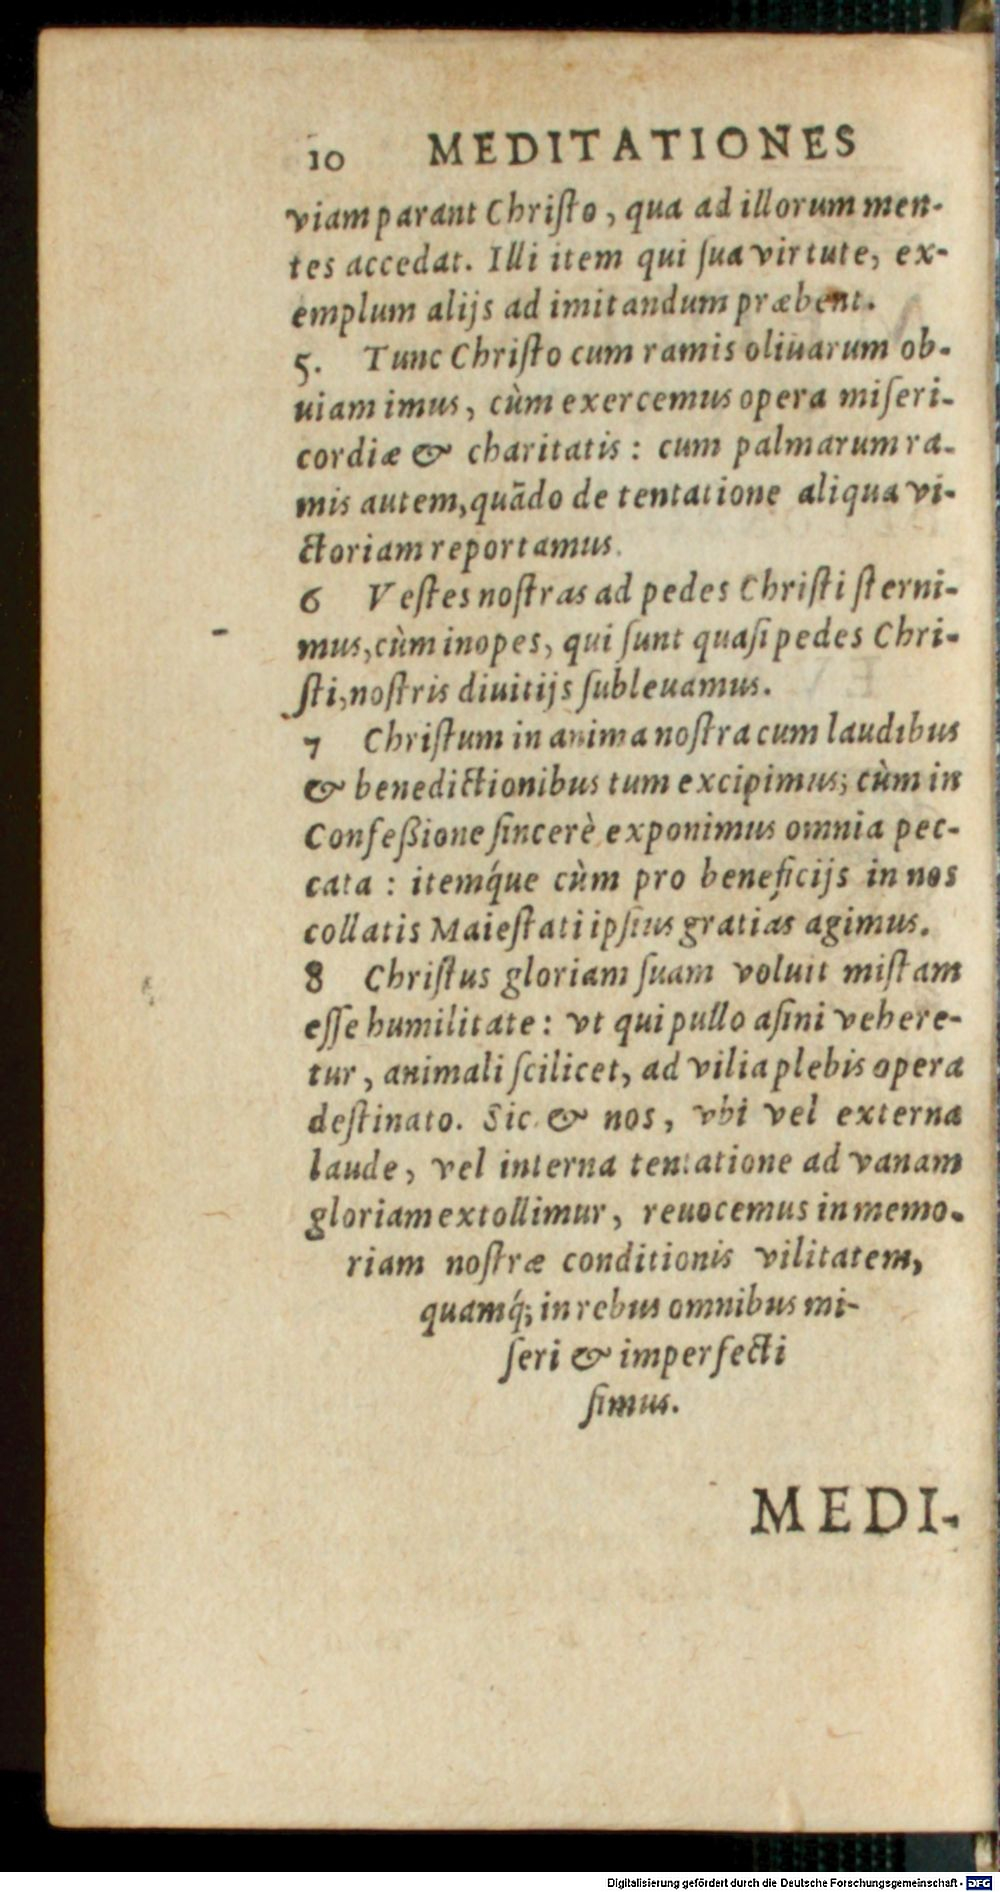 10 MEDITATIONES
viam parant Chriſto, qua ad illorum men-
tes accedat. Illi item qui ſua virtute, ex-
emplum alijs ad imitandum præbent.
5. Tunc Chriſto cum ramis oliuarum ob-
uiam imus, cùm exercemus opera miſeri-
cordiæ & charitatis: cum palmarum ra-
mis autem, quādo de tentatione aliqua vi-
ctoriam reportamus.
6 Veſtes noſtras ad pedes Chriſti ſterni-
mus, cùm inopes, qui ſunt quaſi pedes Chri-
ſti, noſtris diuitijs ſubleuamus.
7 Chriſtum in anima noſtra cum laudibus
& benedictionibus tum excipimus; cùm in
Confeßione ſincerè exponimus omnia pec-
cata: itemq́ue cùm pro beneficijs in nos
collatis Maieſtati ipſius gratias agimus.
8 Chriſtus gloriam ſuam voluit miſtam
eſſe humilitate: vt qui pullo aſini vehere-
tur, animali ſcilicet, ad vilia plebis opera
deſtinato. Sic & nos, vbi vel externa
laude, vel interna tentatione ad vanam
gloriam extollimur, reuocemus in memo-
riam noſtræ conditionis vilitatem,
quamq́; in rebus omnibus mi-
ſeri & imperfecti
ſimus.
MEDI-
Digitalisierung gefördert durch die Deutsche Forschungsgemeinschaft - DFG